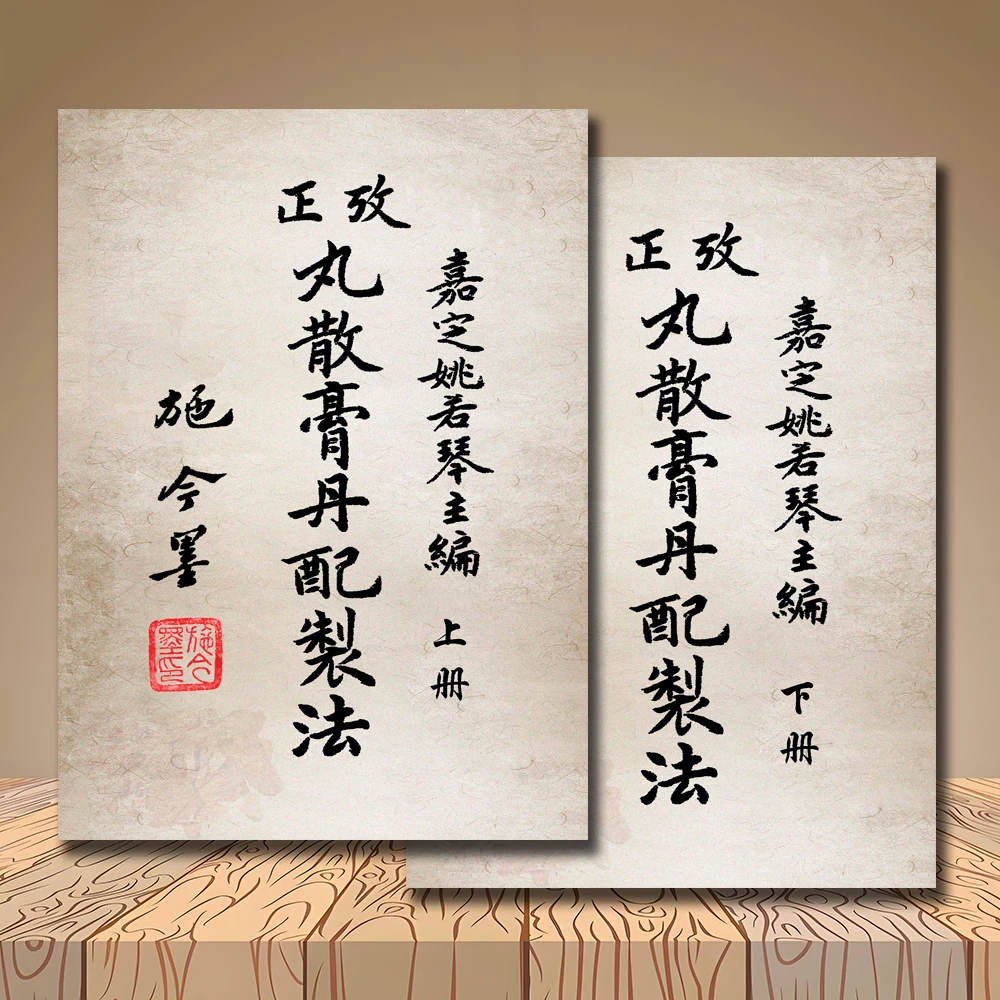 嘉定姚若琴主編 上册
攷正
丸散膏丹配製法
施今墨
施今墨印
嘉定姚若琴主編 下册
攷正
丸散膏丹配製法